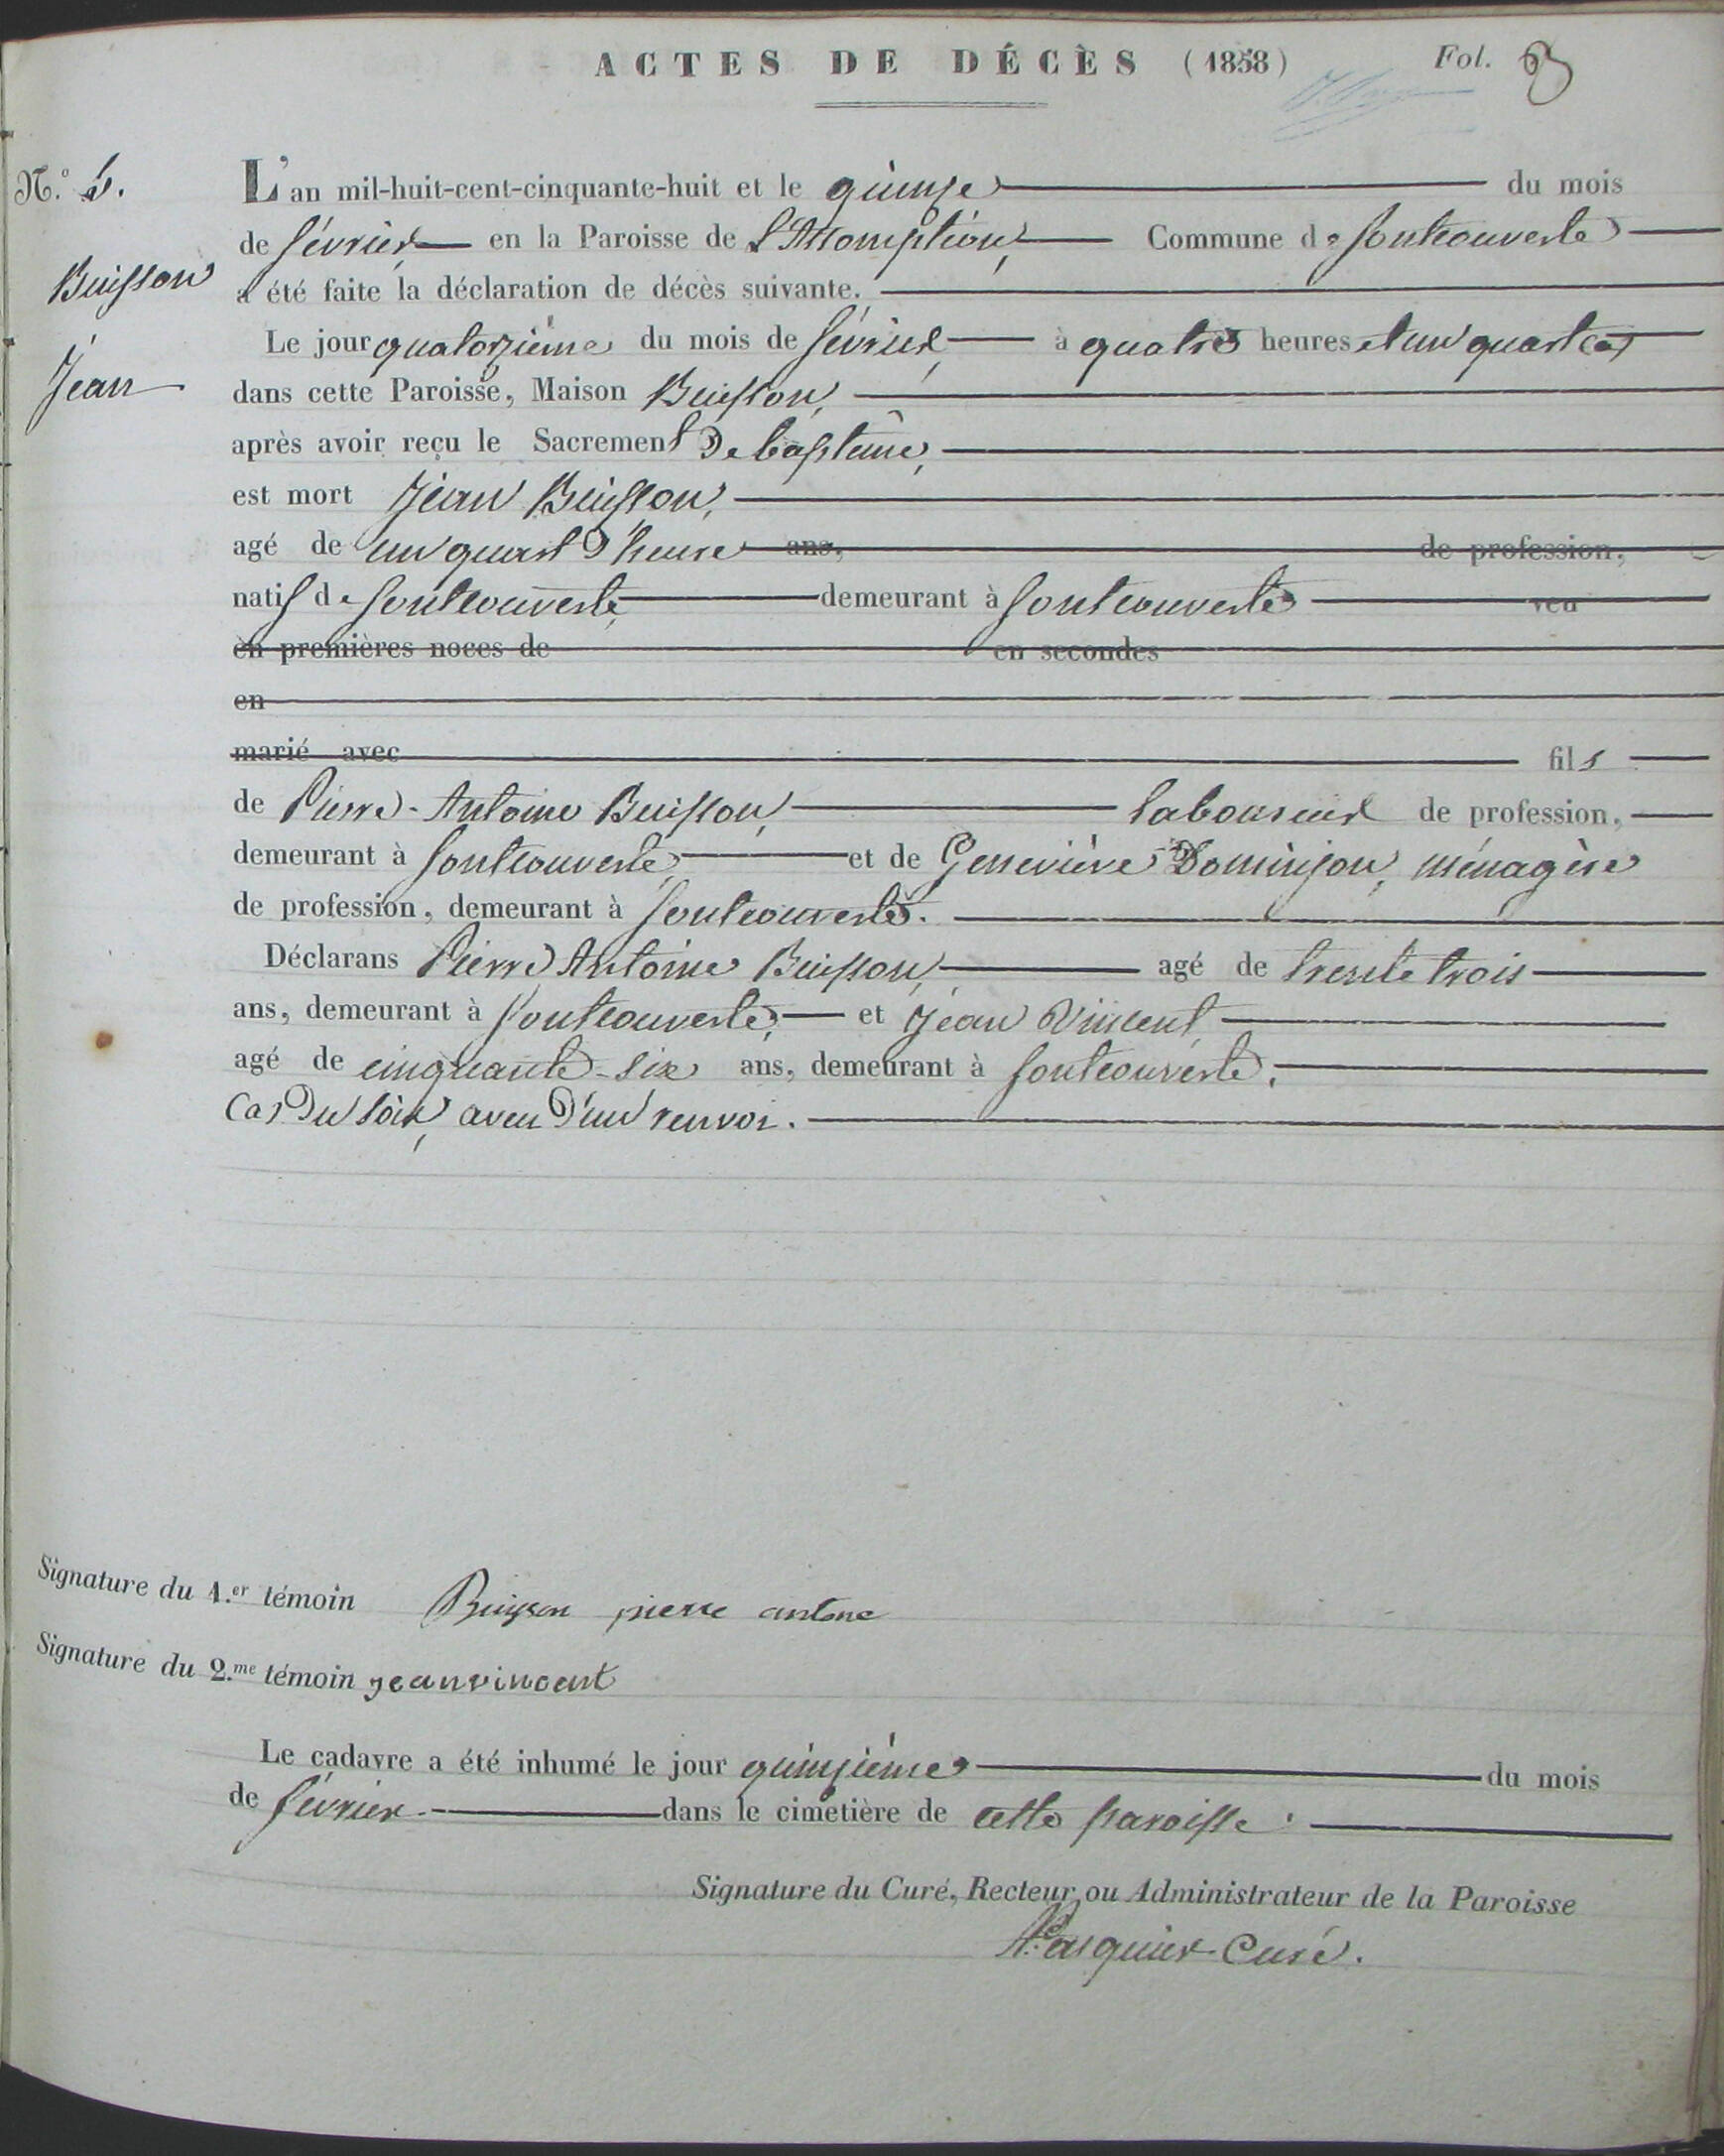 ACTES DE DÉCÈS (1858) Fol.
N.º 5.
Buisson
Jean
L'an mil-huit-cent-cinquante-huit et le quinze du mois
de février en la Paroisse de l'Assomption, Commune de fontcouverte
a été faite la déclaration de décès suivante.
Le jour quatorzième du mois de février, à quatre heures et un quart (a)
dans cette Paroisse, Maison Buisson,
après avoir reçu le Sacrement De baptême,
est mort Jean Buisson,
agé de un quart d'heure ans, de profession,
natif de fontcouverte, demeurant à fontcouverte veu
en premières noces de en secondes
en
marié avec fils
de Pierre-Antoine Buisson, laboureur de profession,
demeurant à fontcouverte, et de Geneviève Dominjon, ménagère
de profession, demeurant à fontcouverte.
Déclarans Pierre Antoine Buisson, agé de trente trois
ans, demeurant à fontcouverte, et Jean Vincent,
agé de cinquante-six ans, demeurant à fontcouverte.
(a) Du soir, aveu d'un renvoi.
Signature du 1.er témoin Buisson pierre antone
Signature du 2.me témoin jean vincent
Le cadavre a été inhumé le jour quinzième du mois
de février dans le cimetière de cette paroisse.
Signature du Curé, Recteur, ou Administrateur de la Paroisse
Pasquier Curé.